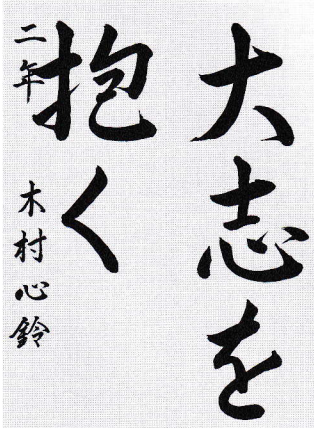 大志を
抱く
二年 木村心鈴